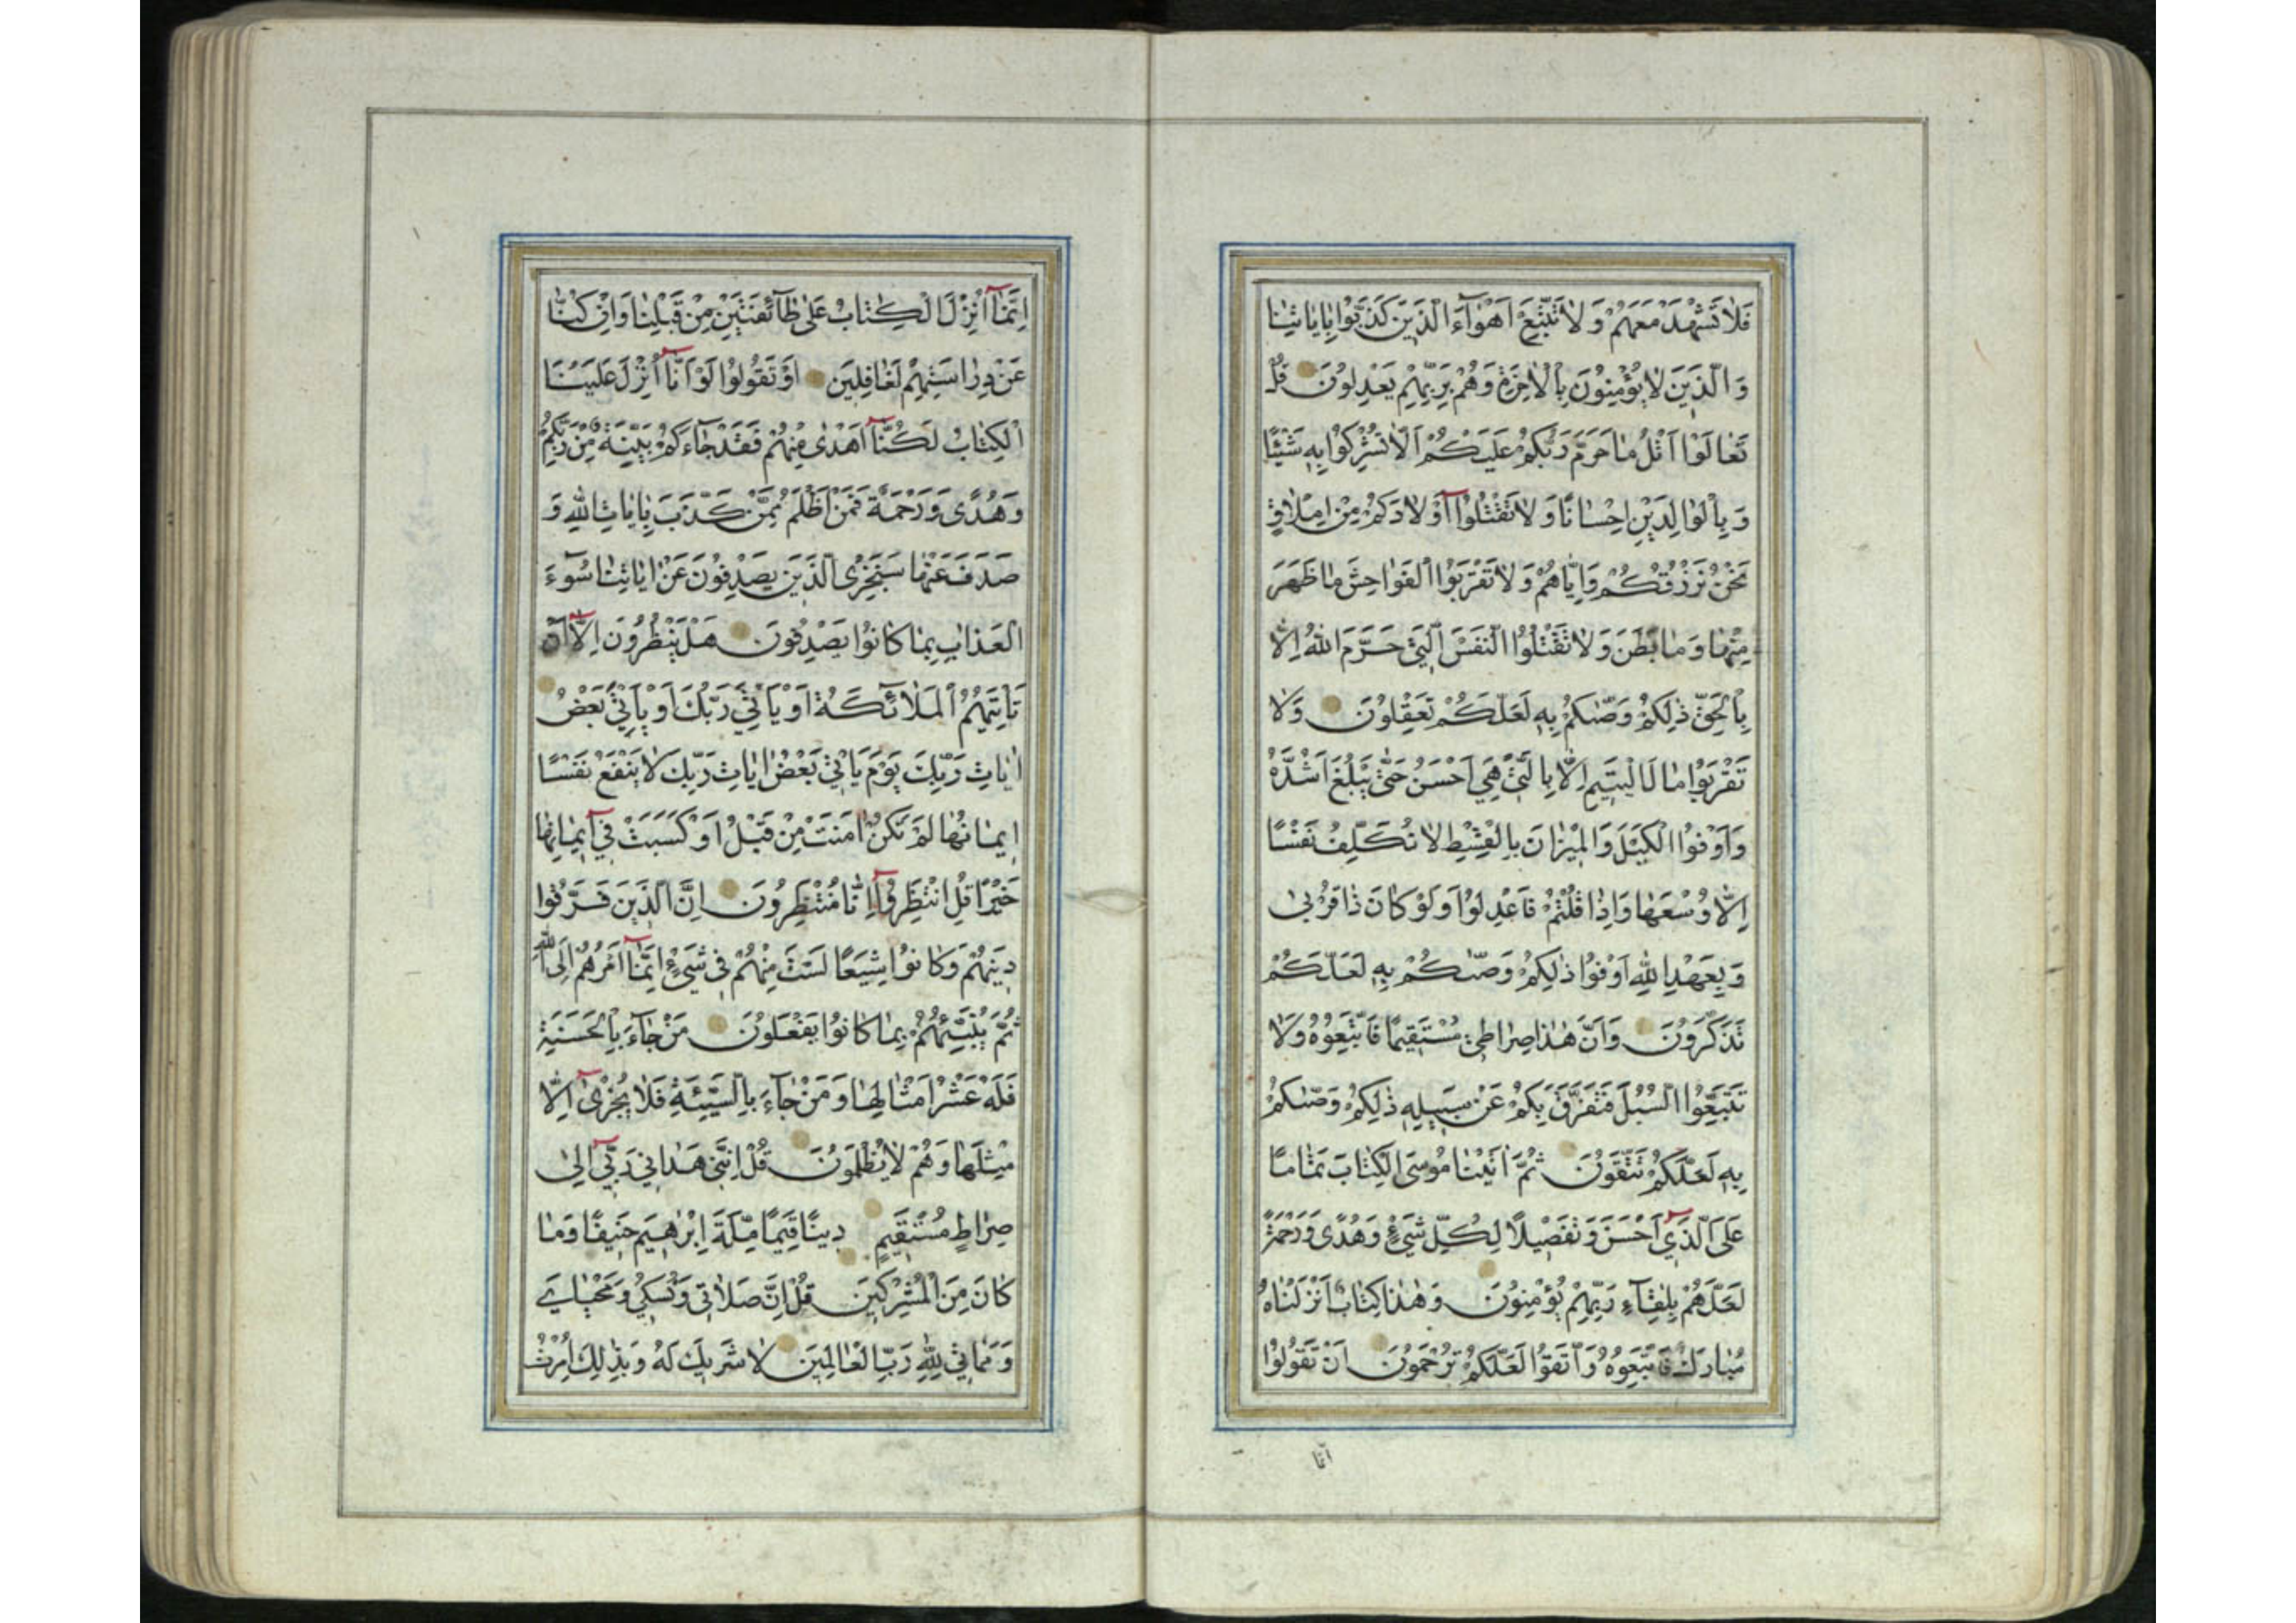 فَلَا تَشْهَدْ مَعَهُمْ وَلَا تَتَّبِعْ اَهْوَآءَ الَّذِينَ كَذَّبُوا بِاٰيَاتِنَا
وَالَّذِينَ لَا يُؤْمِنُونَ بِالْاٰخِرَةِ وَهُمْ بِرَبِّهِمْ يَعْدِلُونَ قُلْ
تَعَالَوْا اَتْلُ مَا حَرَّمَ رَبُّكُمْ عَلَيْكُمْ اَلَّا تُشْرِكُوا بِهِ شَيْئًا
وَبِالْوَالِدَيْنِ اِحْسَانًا وَلَا تَقْتُلُوٓا اَوْلَادَكُمْ مِنْ اِمْلَاقٍ
نَحْنُ نَرْزُقُكُمْ وَاِيَّاهُمْ وَلَا تَقْرَبُوا الْفَوَاحِشَ مَا ظَهَرَ
مِنْهَا وَمَا بَطَنَ وَلَا تَقْتُلُوا النَّفْسَ الَّتِي حَرَّمَ اللّٰهُ اِلَّا
بِالْحَقِّ ذٰلِكُمْ وَصّٰىكُمْ بِهِ لَعَلَّكُمْ تَعْقِلُونَ وَلَا
تَقْرَبُوا مَالَ الْيَتِيمِ اِلَّا بِالَّتِي هِيَ اَحْسَنُ حَتّٰى يَبْلُغَ اَشُدَّهُ
وَاَوْفُوا الْكَيْلَ وَالْمِيزَانَ بِالْقِسْطِ لَا نُكَلِّفُ نَفْسًا
اِلَّا وُسْعَهَا وَاِذَا قُلْتُمْ فَاعْدِلُوا وَلَوْ كَانَ ذَا قُرْبٰى
وَبِعَهْدِ اللّٰهِ اَوْفُوا ذٰلِكُمْ وَصّٰىكُمْ بِهِ لَعَلَّكُمْ
تَذَكَّرُونَ وَاَنَّ هٰذَا صِرَاطِي مُسْتَقِيمًا فَاتَّبِعُوهُ وَلَا
تَتَّبِعُوا السُّبُلَ فَتَفَرَّقَ بِكُمْ عَنْ سَبِيلِهِ ذٰلِكُمْ وَصّٰىكُمْ
بِهِ لَعَلَّكُمْ تَتَّقُونَ ثُمَّ اٰتَيْنَا مُوسَى الْكِتَابَ تَمَامًا
عَلَى الَّذِيٓ اَحْسَنَ وَتَفْصِيلًا لِكُلِّ شَيْءٍ وَهُدًى وَرَحْمَةً
لَعَلَّهُمْ بِلِقَآءِ رَبِّهِمْ يُؤْمِنُونَ وَهٰذَا كِتَابٌ اَنْزَلْنَاهُ
مُبَارَكٌ فَاتَّبِعُوهُ وَاتَّقُوا لَعَلَّكُمْ تُرْحَمُونَ اَنْ تَقُولُوا
اِنَّمَا
اِنَّمَآ اُنْزِلَ الْكِتَابُ عَلٰى طَآئِفَتَيْنِ مِنْ قَبْلِنَا وَاِنْ كُنَّا
عَنْ دِرَاسَتِهِمْ لَغَافِلِينَ اَوْ تَقُولُوا لَوْ اَنَّآ اُنْزِلَ عَلَيْنَا
الْكِتَابُ لَكُنَّآ اَهْدٰى مِنْهُمْ فَقَدْ جَآءَكُمْ بَيِّنَةٌ مِنْ رَبِّكُمْ
وَهُدًى وَرَحْمَةٌ فَمَنْ اَظْلَمُ مِمَّنْ كَذَّبَ بِاٰيَاتِ اللّٰهِ وَ
صَدَفَ عَنْهَا سَنَجْزِي الَّذِينَ يَصْدِفُونَ عَنْ اٰيَاتِنَا سُوٓءَ
الْعَذَابِ بِمَا كَانُوا يَصْدِفُونَ هَلْ يَنْظُرُونَ اِلَّآ اَنْ
تَأْتِيَهُمُ الْمَلَآئِكَةُ اَوْ يَأْتِيَ رَبُّكَ اَوْ يَأْتِيَ بَعْضُ
اٰيَاتِ رَبِّكَ يَوْمَ يَأْتِي بَعْضُ اٰيَاتِ رَبِّكَ لَا يَنْفَعُ نَفْسًا
اِيمَانُهَا لَمْ تَكُنْ اٰمَنَتْ مِنْ قَبْلُ اَوْ كَسَبَتْ فِيٓ اِيمَانِهَا
خَيْرًا قُلِ انْتَظِرُوٓا اِنَّا مُنْتَظِرُونَ اِنَّ الَّذِينَ فَرَّقُوا
دِينَهُمْ وَكَانُوا شِيَعًا لَسْتَ مِنْهُمْ فِي شَيْءٍ اِنَّمَآ اَمْرُهُمْ اِلَى اللّٰهِ
ثُمَّ يُنَبِّئُهُمْ بِمَا كَانُوا يَفْعَلُونَ مَنْ جَآءَ بِالْحَسَنَةِ
فَلَهُ عَشْرُ اَمْثَالِهَا وَمَنْ جَآءَ بِالسَّيِّئَةِ فَلَا يُجْزٰىٓ اِلَّا
مِثْلَهَا وَهُمْ لَا يُظْلَمُونَ قُلْ اِنَّنِي هَدَانِي رَبِّيٓ اِلٰى
صِرَاطٍ مُسْتَقِيمٍ دِينًا قِيَمًا مِلَّةَ اِبْرٰهِيمَ حَنِيفًا وَمَا
كَانَ مِنَ الْمُشْرِكِينَ قُلْ اِنَّ صَلَاتِي وَنُسُكِي وَمَحْيَايَ
وَمَمَاتِي لِلّٰهِ رَبِّ الْعَالَمِينَ لَا شَرِيكَ لَهُ وَبِذٰلِكَ اُمِرْتُ